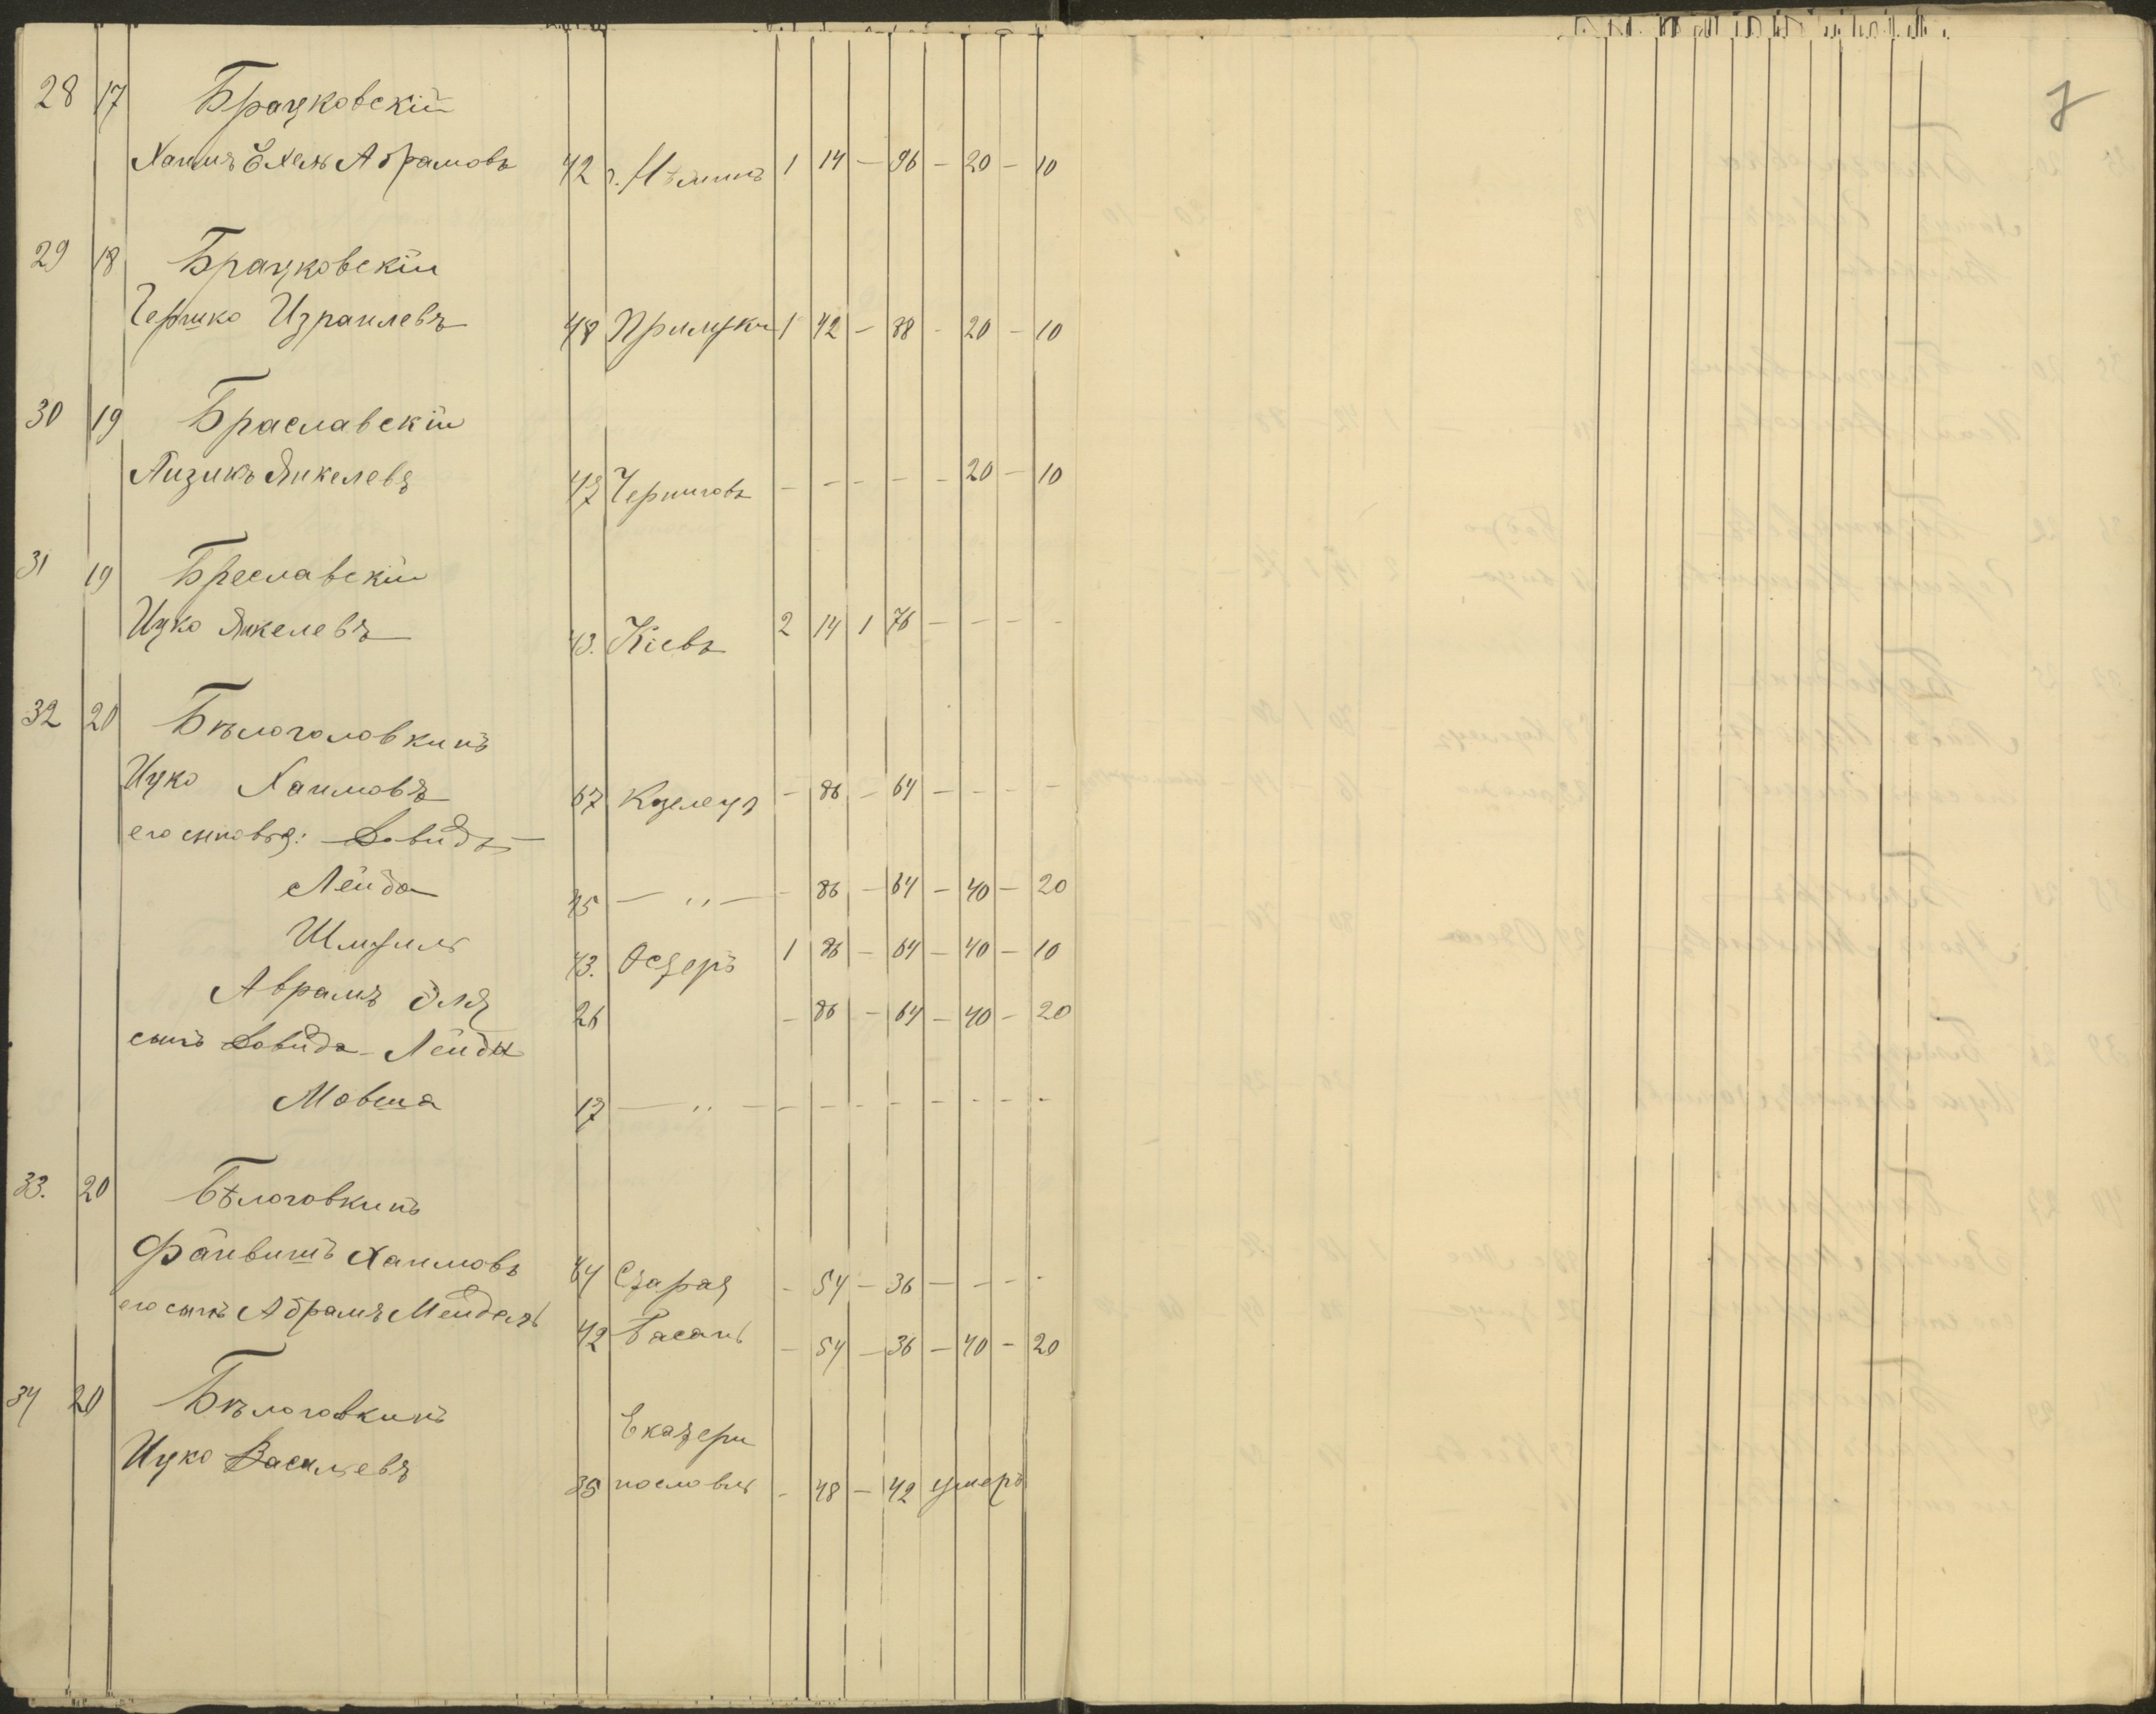 28 17 Брацковскій
Хаимъ Ехель Абрамовъ 42 г. Нѣжинъ 1 14 — 96 — 20 — 10
29 18 Брацковскій
Гершко Израилевъ 48 Прилуки 1 42 — 88 — 20 — 10
30 19 Браславскій
Айзикъ Янкелевъ 47 Черниговъ — — — — — 20 — 10
31 19 Бреславскій
Ицко Янкелевъ 43. Кіевъ 2 14 1 76 — — — —
32 20 Бѣлоголовкинъ
Ицко Хаимовъ 67 Козелецъ — 86 — 64 — — — —
его сыновья: Довидъ —
Лейба 45 — „ — — 86 — 64 — 40 — 20
Шмуль 43. Остеръ 1 86 — 64 — 40 — 10
Аврамъ Эля 26 — 86 — 64 — 40 — 20
сынъ Довида-Лейбы
Мовша 17 — „ — — — — — — — — —
33. 20 Бѣлоговкинъ
Файвишъ Хаимовъ 64 Старая — 54 — 36 — — — —
его сынъ Абрамъ Мендель 42 Басань — 54 — 36 — 40 — 20
34 20 Бѣлоговкинъ
Екатери
Ицко Васильевъ 35 нославль — 48 — 42 умеръ
7